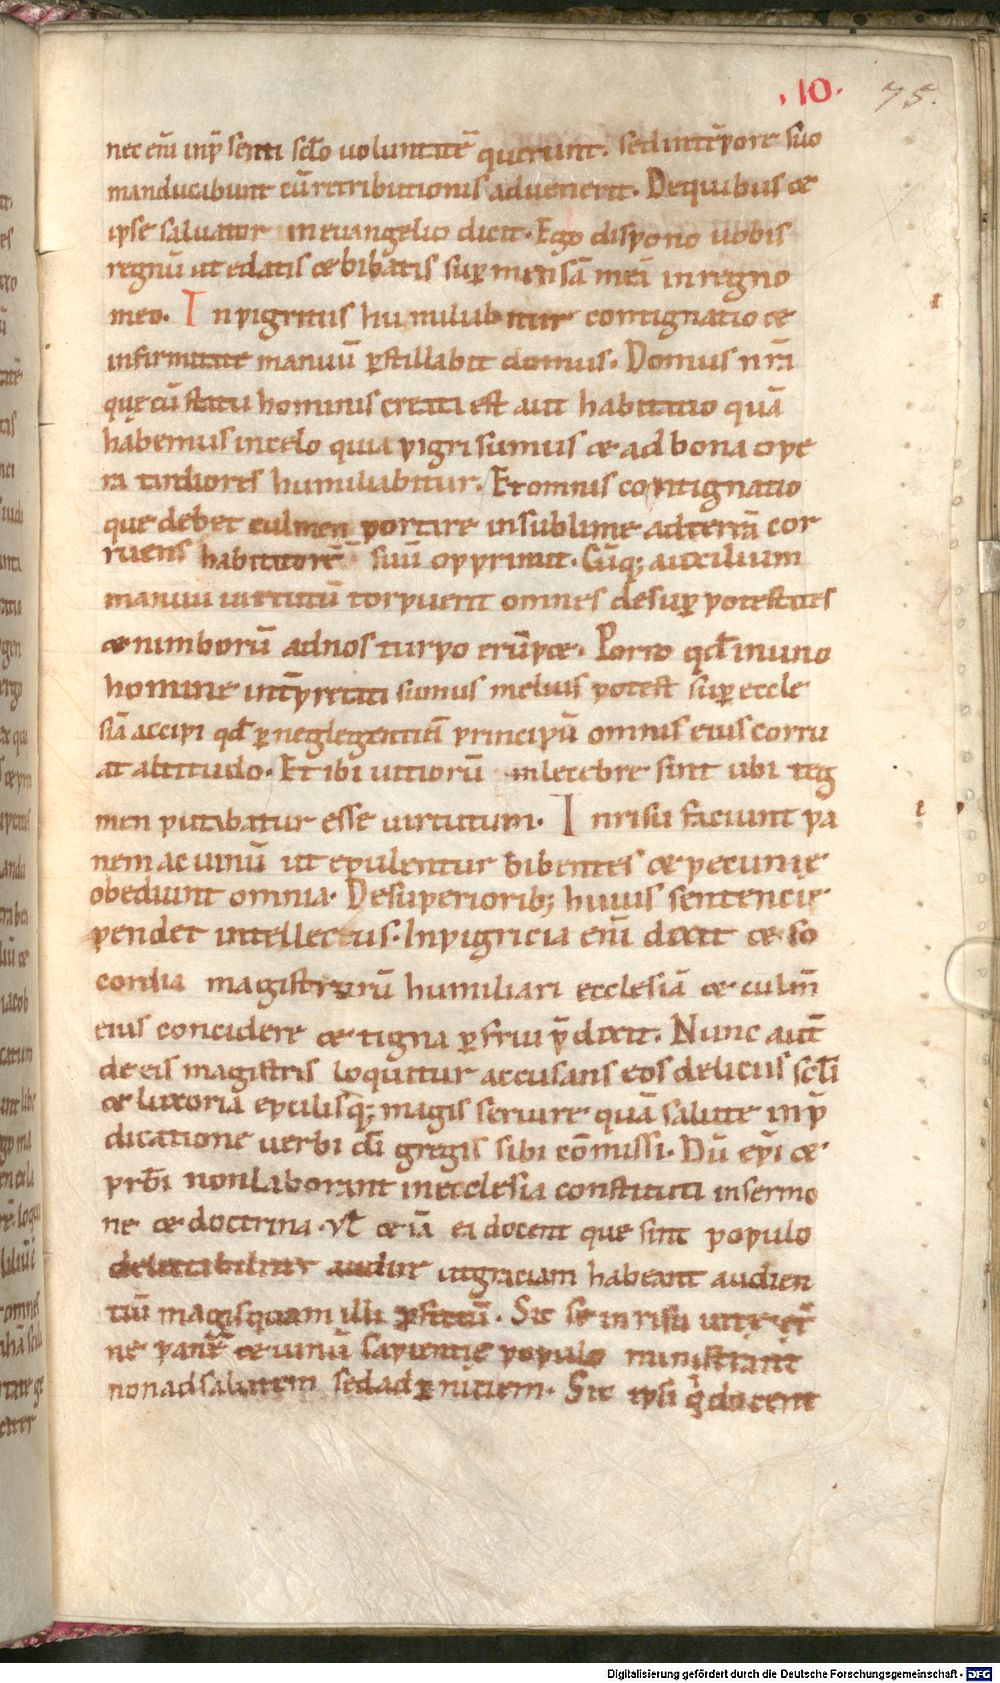 .10. 75.
nec eni͞ inp̄ senti scl̄o uoluntatē querunt. sed intēpore suo
manducabunt cū retributionis aduenerit. De quibus &
ipse saluator in euangelio dicit. Ego dispono uobis
regnū ut edatis & bibatis sup̲ mensā meā in regno
meo. In pigritiis humiliabitur contignatio &
infirmitate manuū p̲stillabit domus. Domus nr̄a
quę cū statu hominis creati est aut habitatio quā
habemus in cęlo quia pigri sumus & ad bona ope
ra tardiores humiliabitur. Et omnis contignatio
que debet culmen portare in sublime ad terrā cor
ruens habitatorē suū opprimit. Cūq; auxilium
manuu uirtutū torpuerit omnes desup̲ potestates
& nimborū ad nos turpo erūp&. Porro qd̄ in uno
homine int̄pretati sumus melius potest sup̲ eccle
siā accipi qd̄ p̲ neglegentiā principū omnis eius corru
at altitudo. Et ibi uitiorū inlecebre sint ubi teg
men putabatur esse uirtutum. In risu faciunt pa
nem ac uinū ut epulentur bibentes & pecunię
obediunt omnia. De superiorib; huius sententię
pendet intellectus. In pigricia eni͞ dixit & so
cordia magistrorū humiliari ecclesiā & culm̄
eius concidere & tigna p̲frui p̄dixit. Nunc aut̄
de eis magistris loquitur accusans eos deliciis scl̄i
& luxoria epulisq; magis seruire quā salute in p̄
dicatione uerbi dī gregis sibi cōmissi. Dū epi̅ &
prb̄i non laborant in ecclesia constituti in sermo
ne & doctrina. ut & iā ea docent que sint populo
delectabiliter audire ut graciam habeant audien
tiū magis quam illi p̲fectū. Sic se in risu
ne panē & uinū sapientię populo ministrant
non ad salutem sed ad p̲niciem. Sic ipsi docent
Digitalisierung gefördert durch die Deutsche Forschungsgemeinschaft - DFG